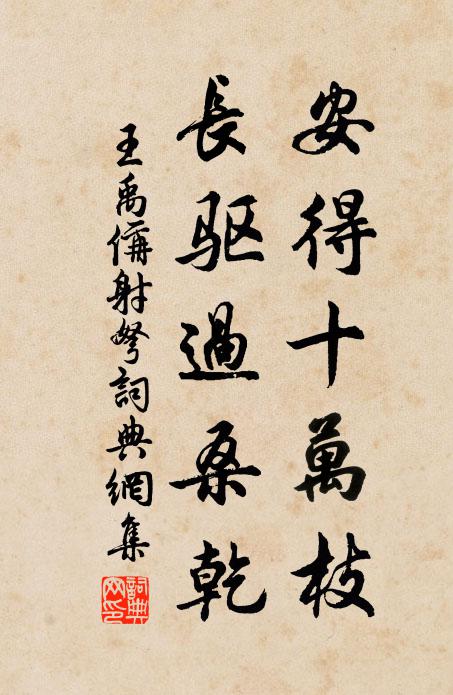 安得十萬枝
長驱過桑乾
王禹偁射弩詞典網集
詞典網印